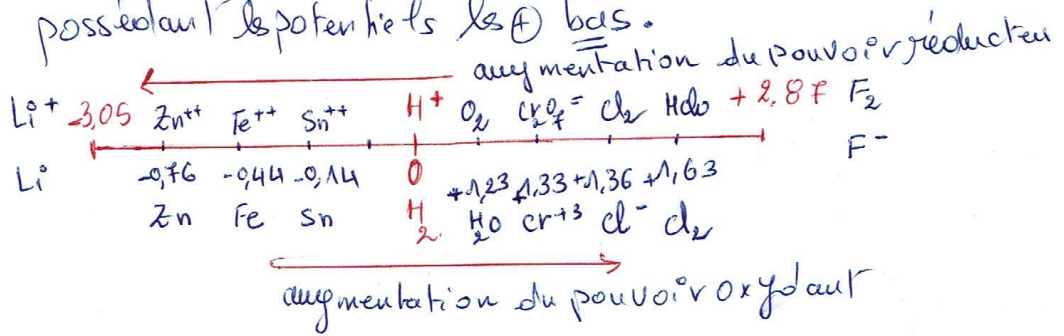 possédant les potentiels les ⊕ bas.
augmentation du pouvoir réducteu
Li+ -3,05 Zn++ Fe++ Sn++ H+ O2 Cr2O7= Cl2 HClO +2,87 F2
F-
Li° -0,76 -0,44 -0,14 0 +1,23 +1,33 +1,36 +1,63
Zn Fe Sn H2 H2O Cr+3 Cl- Cl2
augmentation du pouvoir oxydant